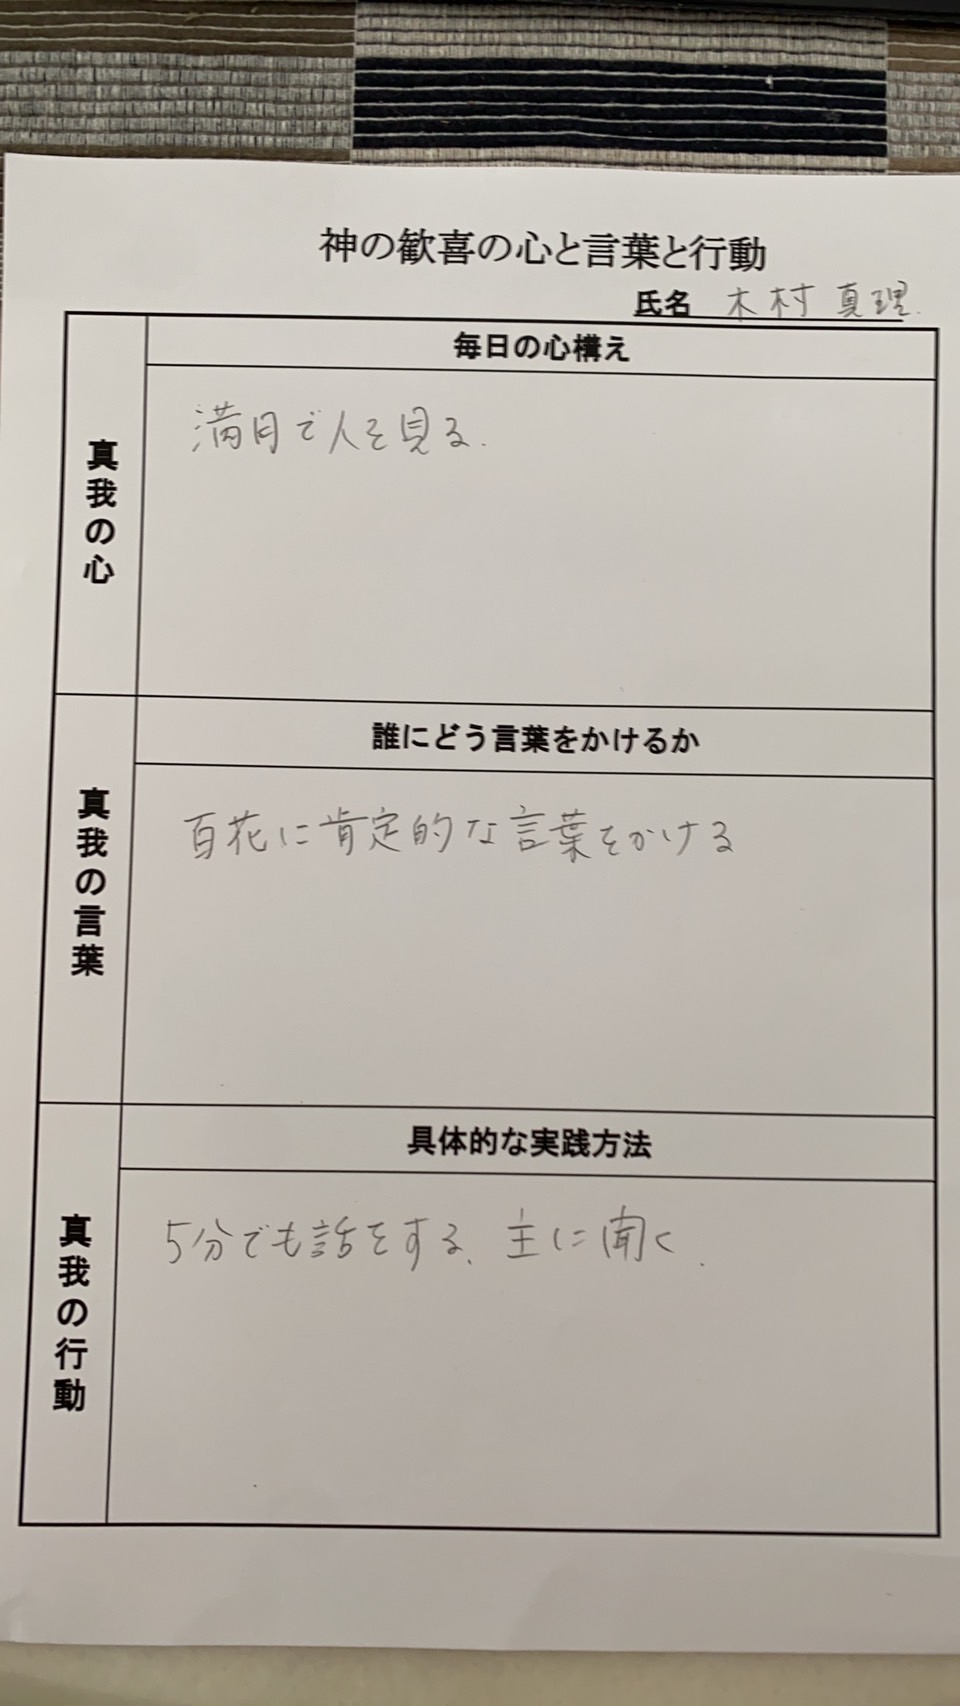 神の歓喜の心と言葉と行動
氏名 木村 真理
毎日の心構え
真我の心
満月で人を見る.
誰にどう言葉をかけるか
真我の言葉
百花に肯定的な言葉をかける
具体的な実践方法
真我の行動
5分でも話をする、主に聞く.